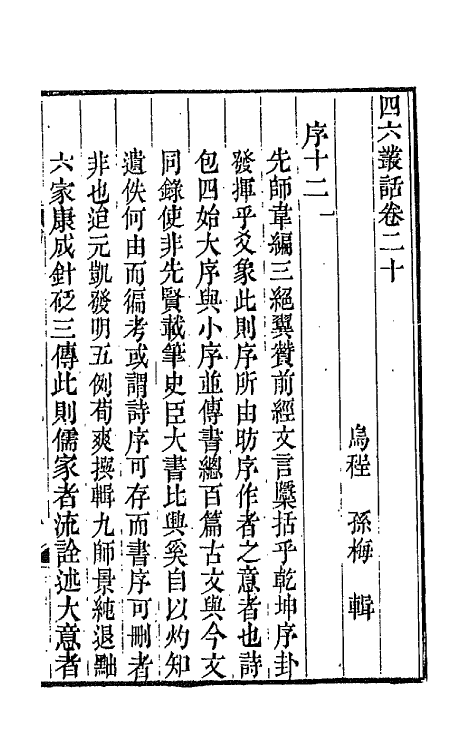 四六叢話卷二十
烏程 孫梅 輯
序十二
先師韋編三絕翼贊前經文言檃括乎乾坤序卦
發揮乎爻象此則序所由昉序作者之意者也詩
包四始大序與小序並傳書總百篇古文與今文
同錄使非先賢載筆史臣大書比興奚自以灼知
遺佚何由而徧考或謂詩序可存而書序可刪者
非也迨元凱發明五例荀爽撰輯九師景純退黜
六家康成針砭三傳此則儒家者流詮述大意者